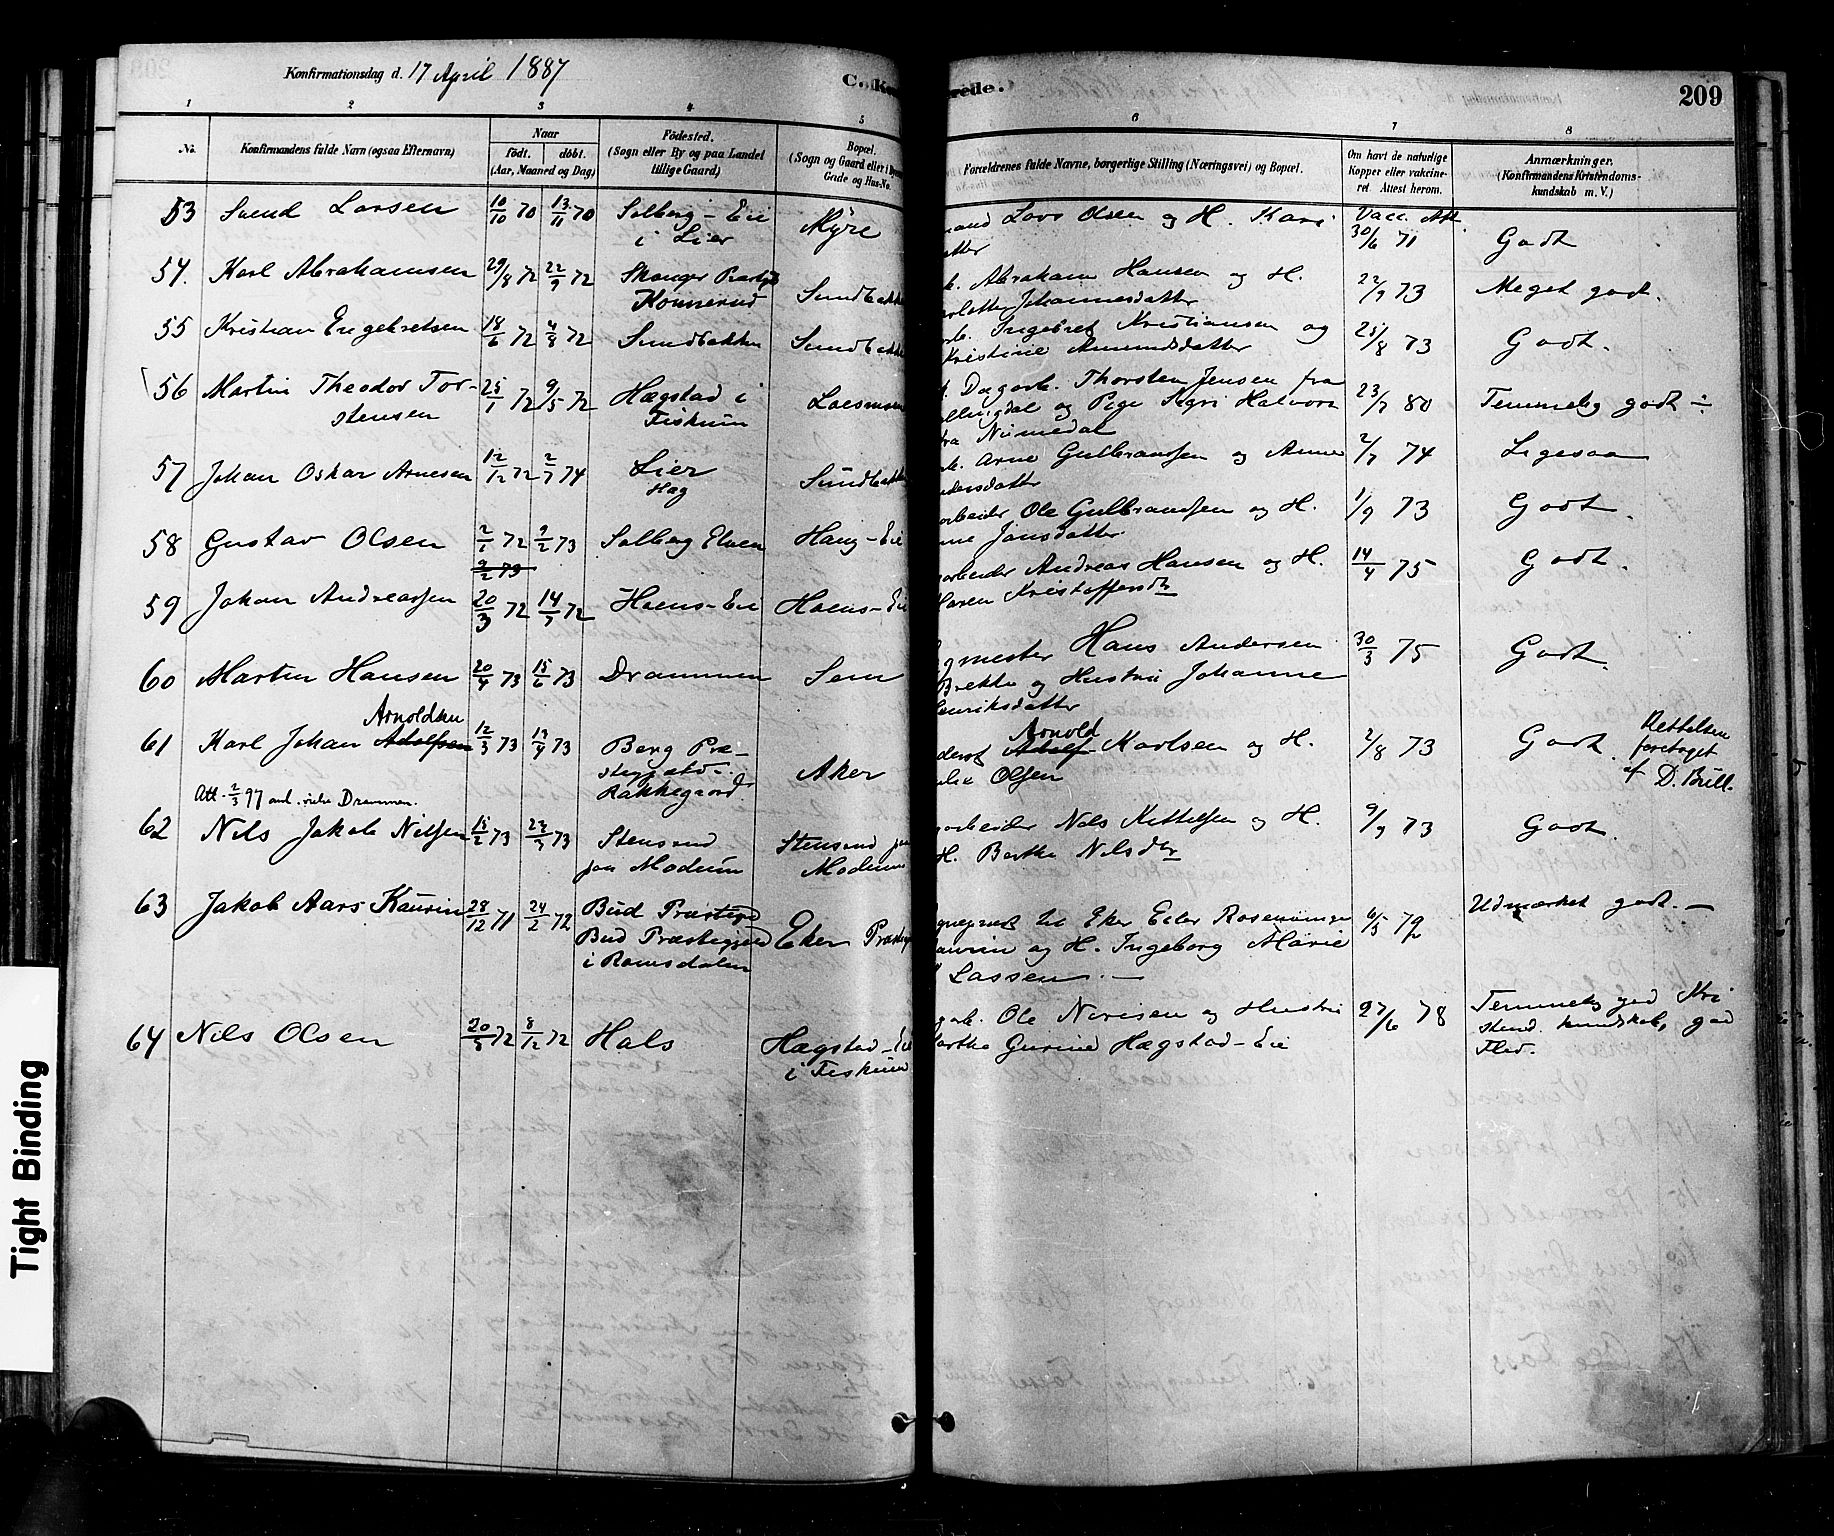 Konfirmationsdag d. 17 April 1887
C. Kon
rede.
209
1 2 3 4 5 6 7 8
No.
Konfirmandens fulde Navn (ogsaa Efternavn)
Naar
födt. döbt.
(Aar, Maaned og Dag)
Födested.
(Sogn eller By og paa Landet
tillige Gaard)
Bopæl.
(Sogn og Gaard eller i
Gade og Hus-No.
Forældrenes fulde Navne, borgerlige Stilling (Næringsvei) og Bopæl.
Om havt de naturlige
Kopper eller vakcine-
ret. Attest herom.
Anmærkninger.
(Konfirmandens Kristendoms-
kundskab m. V.)
53 Svend Larsen 10/10 70 13/11 70 Solberg-Eie
i Lier Myre
mand Lars Olsen og H. Kari
atter
Vacc. Att.
30/6 71 Godt
54. Karl Abrahamsen 29/8 72 22/9 72 Skauger Præstgj
Konnerud Sundbakke
b. Abraham Hansen og H.
arlotte Johannesdatter 22/9 73 Meget godt.
55 Kristian Engebretsen 18/6 72 4/8 72 Sundbakken Sundbakke
Ingebret Kristiansen og
Kristine Amundsdatter 25/8 73 Godt.
56 Martin Theodor Tor-
stensen 25/1 72 9/5 72 Hægstad i
Fiskum Loesmoen
Dagarb. Thorsten Jensen fra
allingdal og Pige Sigri Halvors
fra Numedal 23/7 80 Temmelig godt ÷
57 Johan Oskar Arnesen 12/12 72 2/7 74 Lier
Hæg Sundbakke
b. Arne Gulbransen og Anne
ndersdatter 2/7 74 Ligesaa
58 Gustav Olsen 2/1 72 9/2 73 Solberg Elven Haug-Eie
2/2 73
arbeider Ole Gulbransen og H.
ne Jansdatter 1/9 73 Godt.
59 Johan Andreassen 20/3 72 14/7 72 Hoens-Eie Hoens-Eie
arbeider Andreas Hansen og H.
Maren Kristoffersdtr 14/4 75 Godt.
60 Martin Hansen 20/4 73 15/6 73 Drammen Sem
gmester Hans Andersen
Brekke og Hustru Johanne
enriksdatter 30/3 75 Godt.
Arnoldsen
61 Karl Johan Adolfsen 12/3 73 13/4 73 Berg Præ-
stegjæld.
Rakkegaard. Aker
Att. 2/3 97 anl. Drammen.
Arnold
derst Adolf Karlsen og H.
Olsen 2/8 73 Godt.
Rettelsen
foretaget
af D. Brill.
62 Nils Jakob Nilsen 15/2 73 23/3 73 Stensrud
paa Modum Stensrud paa
Modum
arbeider Nils Kittelsen og H.
H. Berthe Nilsdtr 9/9 73 Godt.
63 Jakob Aars Kaurin 28/12 71 24/2 72 Bud Præstegj
Bud Præstegjæld
i Romsdalen Eker Præstegj
gnepræst til Eker Eiler Rosenvinge
aurin og H. Ingeborg Marie
Lassen. — 6/5 72 Udmærket godt. —
64 Nils Olsen 20/5 72 8/12 72 Hals Hægstad-Eie
i Fiskum
garb. Ole Nirisen og Hustru
arthe Gurine Hægstad-Eie 27/6 78 Temmelig god Kri
stend. kundskab, god
Flid.
Tight Binding